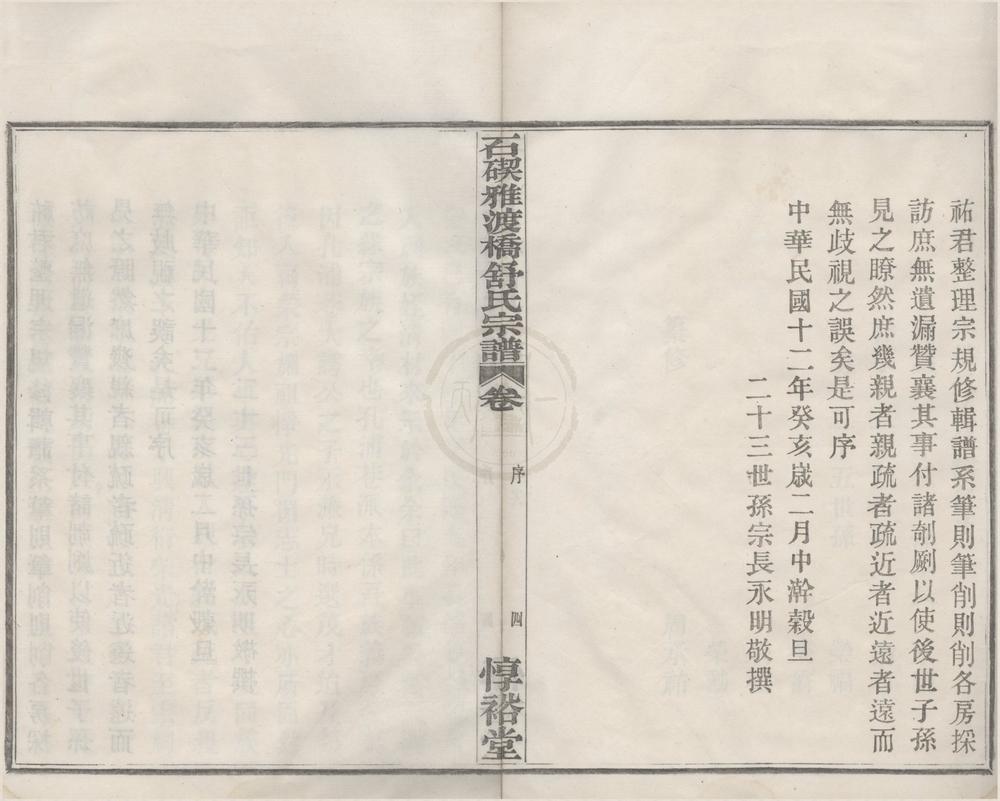 祐君整理宗規修輯譜系筆則筆削則削各房採
訪庶無遺漏贊襄其事付諸剞劂以使後世子孫
見之瞭然庶幾親者親疏者疏近者近遠者遠而
無歧視之誤矣是可序
中華民國十二年癸亥歲二月中澣穀旦
二十三世孫宗長永明敬撰
石碶雅渡橋舒氏宗譜
卷
序
四
惇裕堂